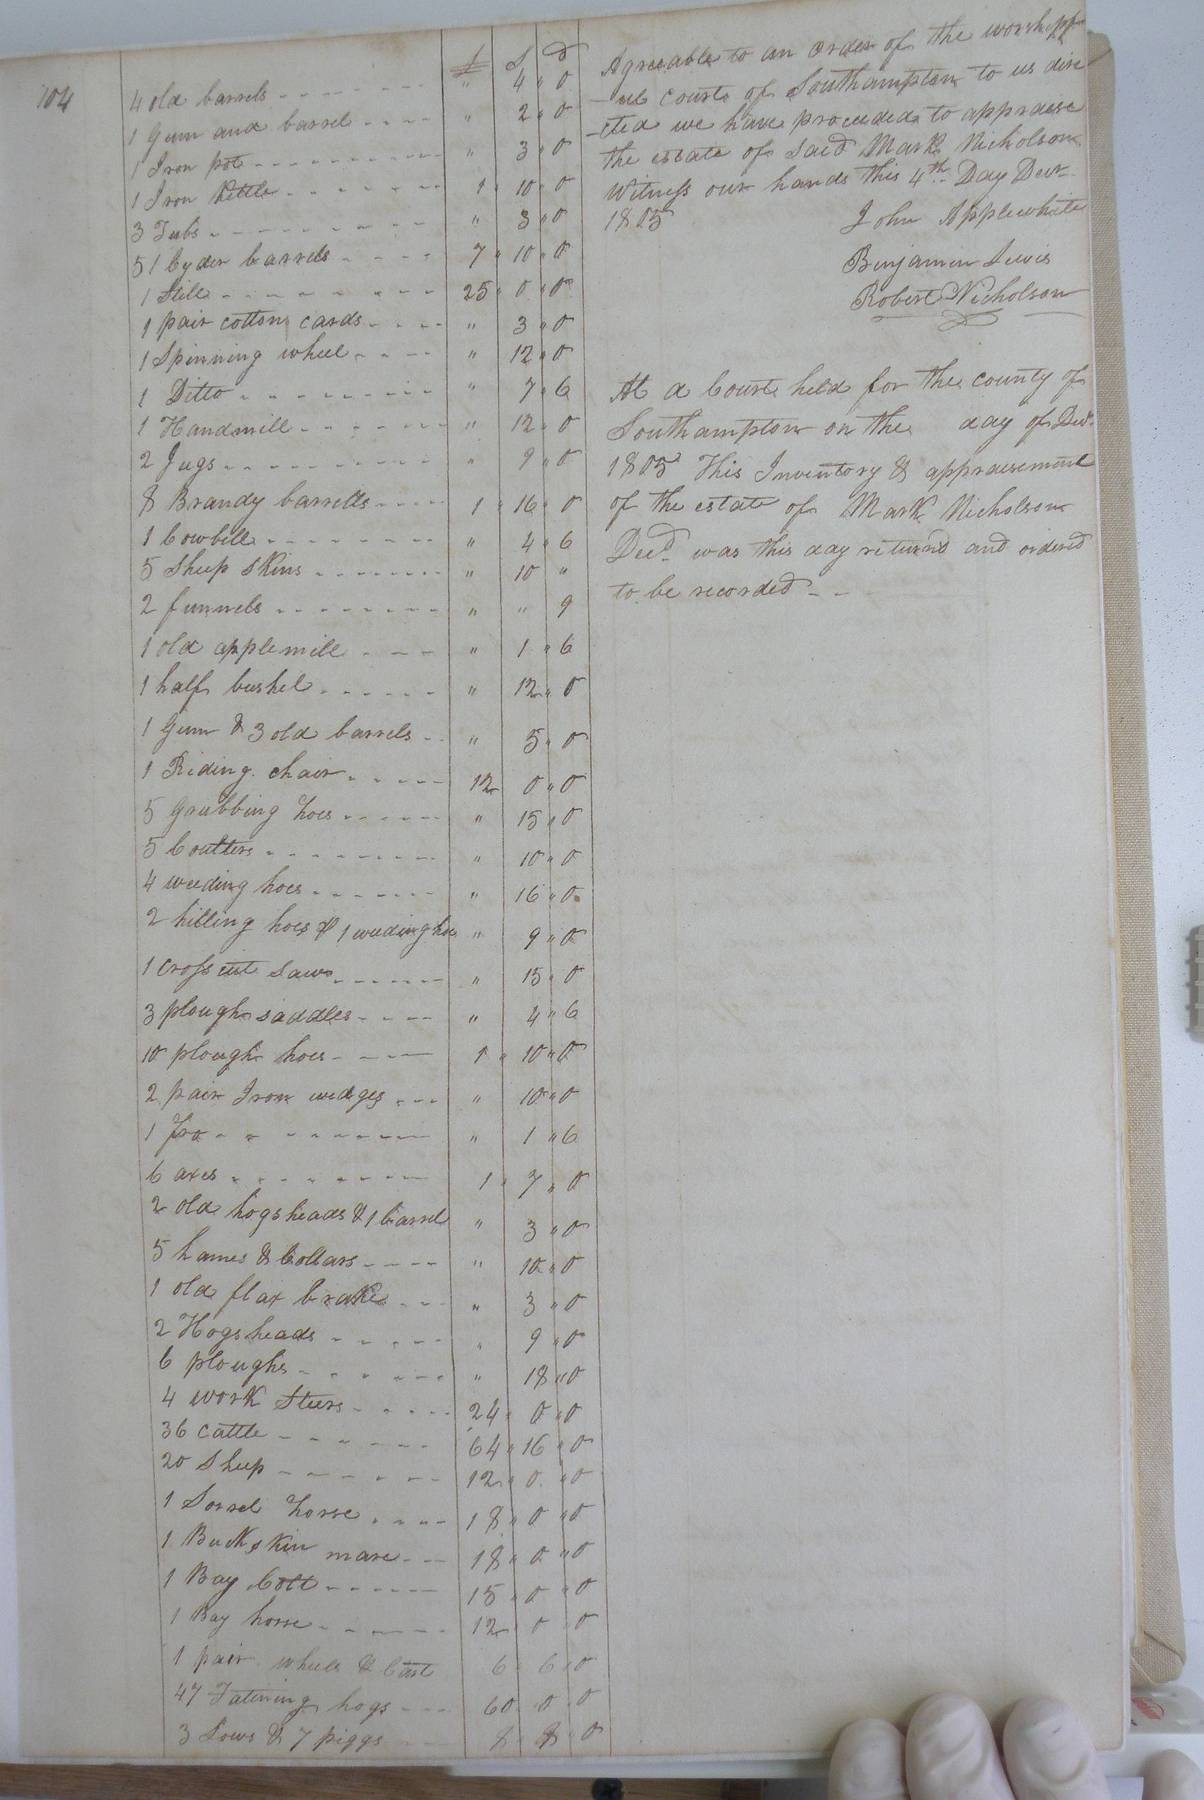 104
£ S d
4 old barrels " 4 " 0
1 Gum and barrel " 2 " 0
1 Iron pot " 3 " 0
1 Iron Kettle 1 " 10 " 0
3 Tubs " 3 " 0
51 Cyder barrels 7 " 10 " 0
1 Still 25 " 0 " 0
1 pair cotton cards " 3 " 0
1 Spinning wheel " 12 " 0
1 Ditto " 7 " 6
1 Handmill " 12 " 0
2 Jugs " 9 " 0
8 Brandy barrells 1 " 16 " 0
1 Cowbell " 4 " 6
5 Sheep Skins " 10 "
2 funnels " " 9
1 old applemill " 1 " 6
1 half bushel " 12 " 0
1 Gum & 3 old barrels " 5 " 0
1 Riding chair 12 0 " 0
5 Grubbing hoes " 15 " 0
5 Coulters " 10 " 0
4 weeding hoes " 16 " 0
2 hilling hoes & 1 weeding hoe " 9 " 0
1 Cross cut Saw " 15 " 0
3 plough saddles " 4 " 6
10 plough hoes 1 " 10 " 0
2 pair Iron wedges " 10 " 0
1 fro " 1 " 6
6 axes 1 " 7 " 0
2 old hogsheads & 1 barrel " 3 " 0
5 hames & Collars " 10 " 0
1 old flax brake " 3 " 0
2 Hogsheads " 9 " 0
6 ploughs " 18 " 0
4 work Steers 24 " 0 " 0
36 Cattle 64 " 16 " 0
20 Sheep 12 " 0 " 0
1 Sorrel horse 18 " 0 " 0
1 Buckskin mare 18 " 0 " 0
1 Bay Colt 15 " 0 " 0
1 Bay horse 12 " 0 0
1 pair wheels & Cart 6 " 6 " 0
47 Fatening hogs 60 " 0 " 0
3 Sows & 7 piggs 8 " 8 " 0
Agreeable to an Order of the worshipf
-ul Court of Southampton to us dire
-cted we have proceeded to appraise
the estate of said Mark Nicholson
Witness our hands this 4th Day Decr.
1805 John Applewhite
Benjamin Lewis
Robert Nicholson
At a Court held for the county of
Southampton on the day of Decr.
1805 This Inventory & appraisement
of the estate of Mark Nicholson
Decd. was this day returnd and ordered
to be recorded